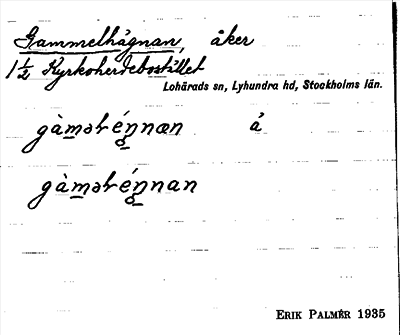 Gammelhägnan, åker
1 1/2 Kyrkoherdebostället
Lohärads sn, Lyhundra hd, Stockholms län.
å
ERIK PALMÉR 1935